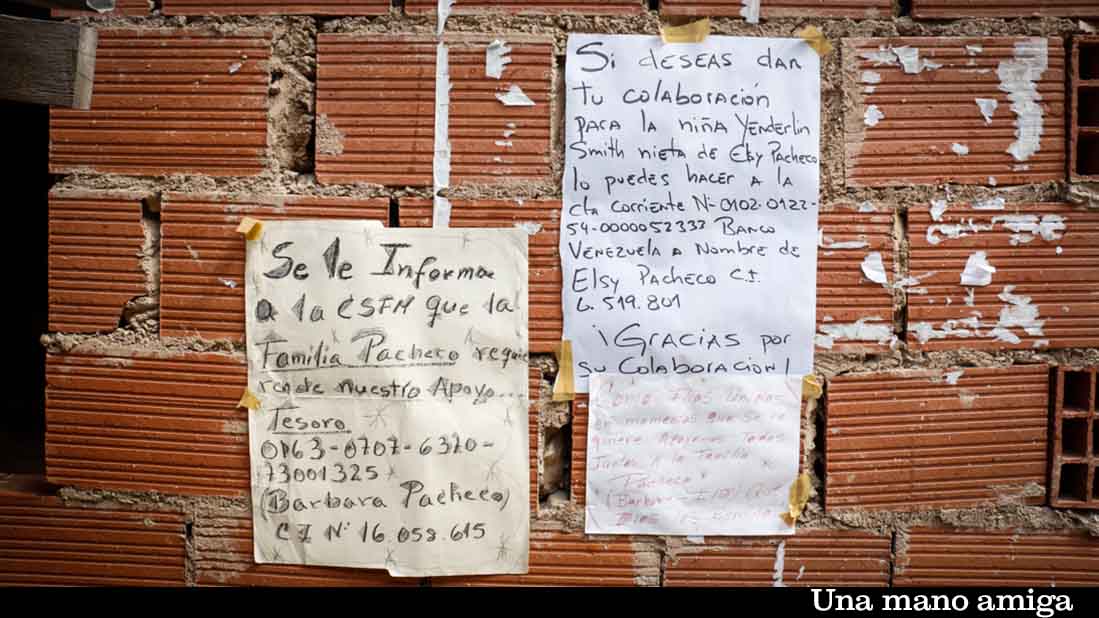 Se le Informa
a la CSFM que la
Familia Pacheco requie
ren de nuestro Apoyo...
Tesoro
0163-0707-6370-
73001325
(Barbara Pacheco)
C I Nº 16.058.615
Si DESEAS DAR
tu colaboración
PARA LA niñA YENDERLin
Smith nieta de Elsy Pacheco
lo puedes hacer A la
cta corriente Nº 0102-0122-
54-0000052333 BANCO
VENEZUELA a Nombre de
Elsy PACHECO C.I.
6.519.801
¡GRACIAS por
su Colaboración!
Como
momentos que se re
quiere Todos
Juntos A la Familia
Pacheco
Dios
Una mano amiga